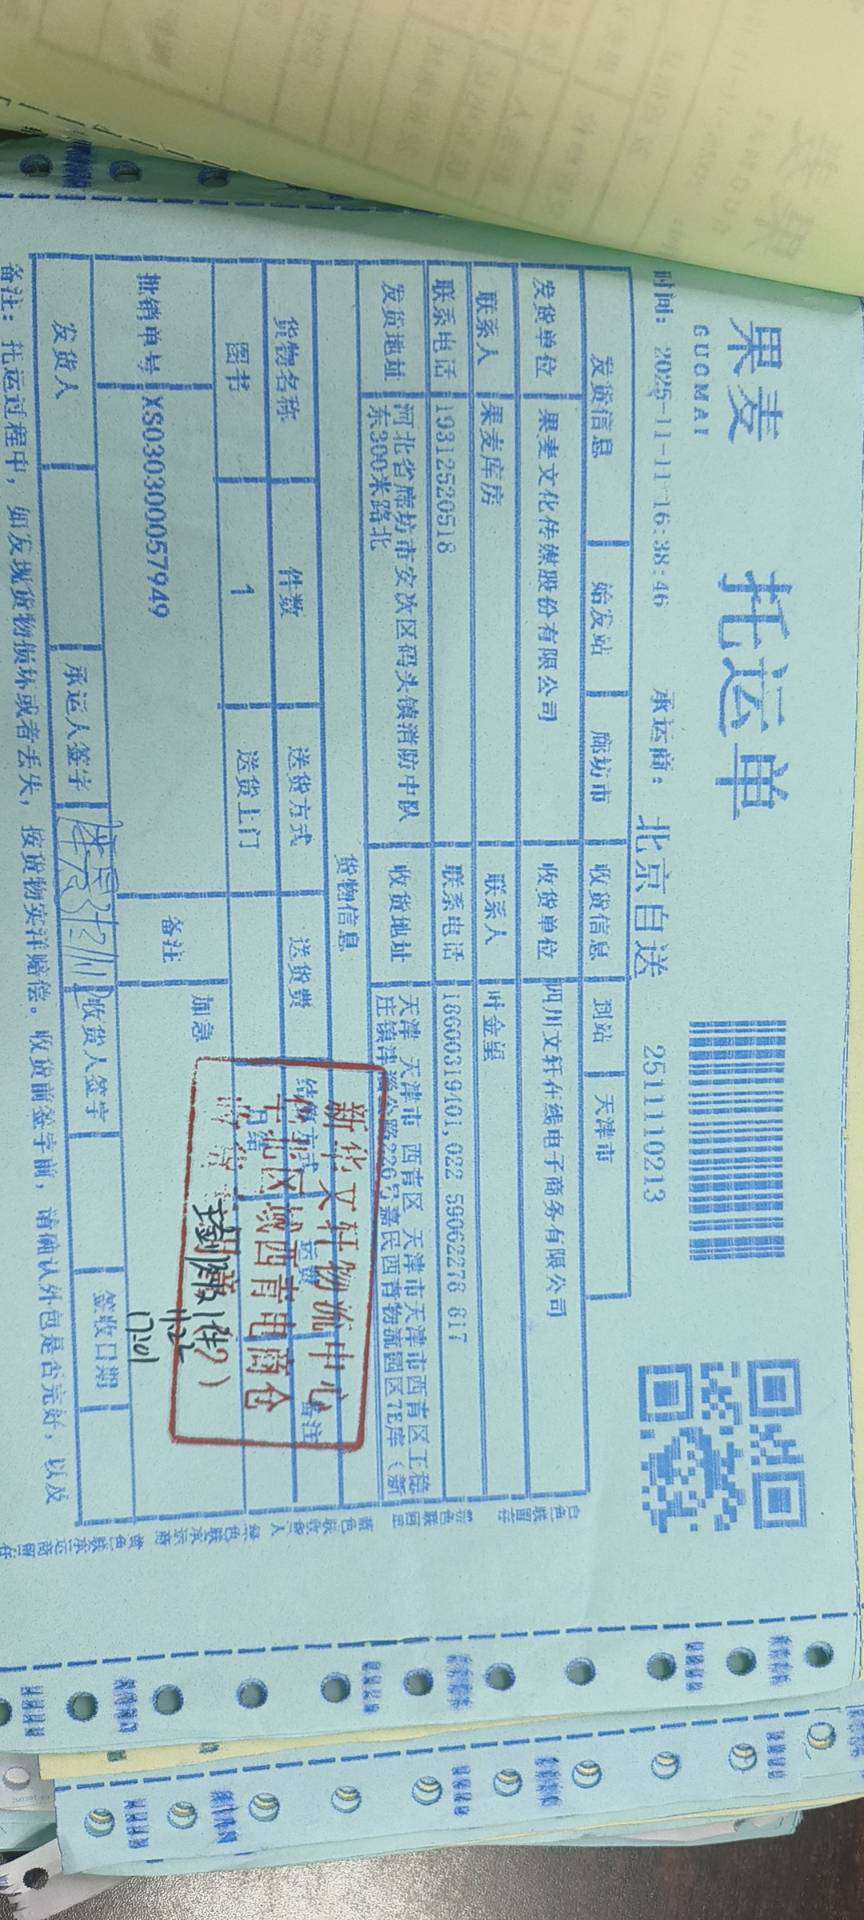 果麦 托运单
GUOMAI
时间: 2025-11-11 16:38:46 承运商: 北京自送 2511110213
发货信息 始发站 廊坊市 收货信息 到站 天津市
发货单位 果麦文化传媒股份有限公司 收货单位 四川文轩在线电子商务有限公司
联系人 果麦库房 联系人 叶金望
联系电话 19312520518 联系电话 18600319401,022 59062278 817
发货地址 河北省廊坊市安次区码头镇消防中队 收货地址 天津 天津市 西青区 天津市天津市西青区王稳
东300米路北 庄镇津 公路226号嘉民西青物流园区7E库（新
货物信息
货物名称 件数 送货方式 送货费 结算方式 运费 备注
图书 1 送货上门 月结
批销单号 XS030300057949 备注 加急
新华文轩物流中心
西青电商仓
17:01
发货人 承运人签字 收货人签字 签收日期
备注: 托运过程中, 如发现货物损坏或者丢失, 按货物实洋赔偿。收货前签字前, 请确认外包是否完好, 以及